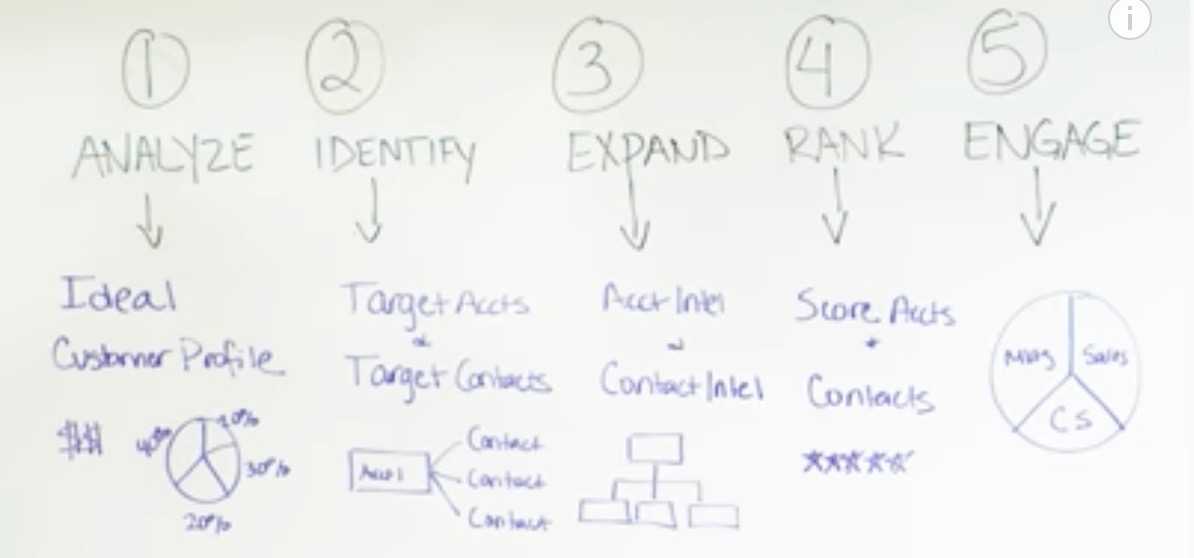 1
ANALYZE
Ideal
Customer Profile
$$$
40%
10%
30%
20%
2
IDENTIFY
Target Accts
&
Target Contacts
Acct 1
Contact
Contact
Contact
3
EXPAND
Acct Intel
Contact Intel
4
RANK
Score Accts
+
Contacts
5
ENGAGE
Mktg
Sales
CS